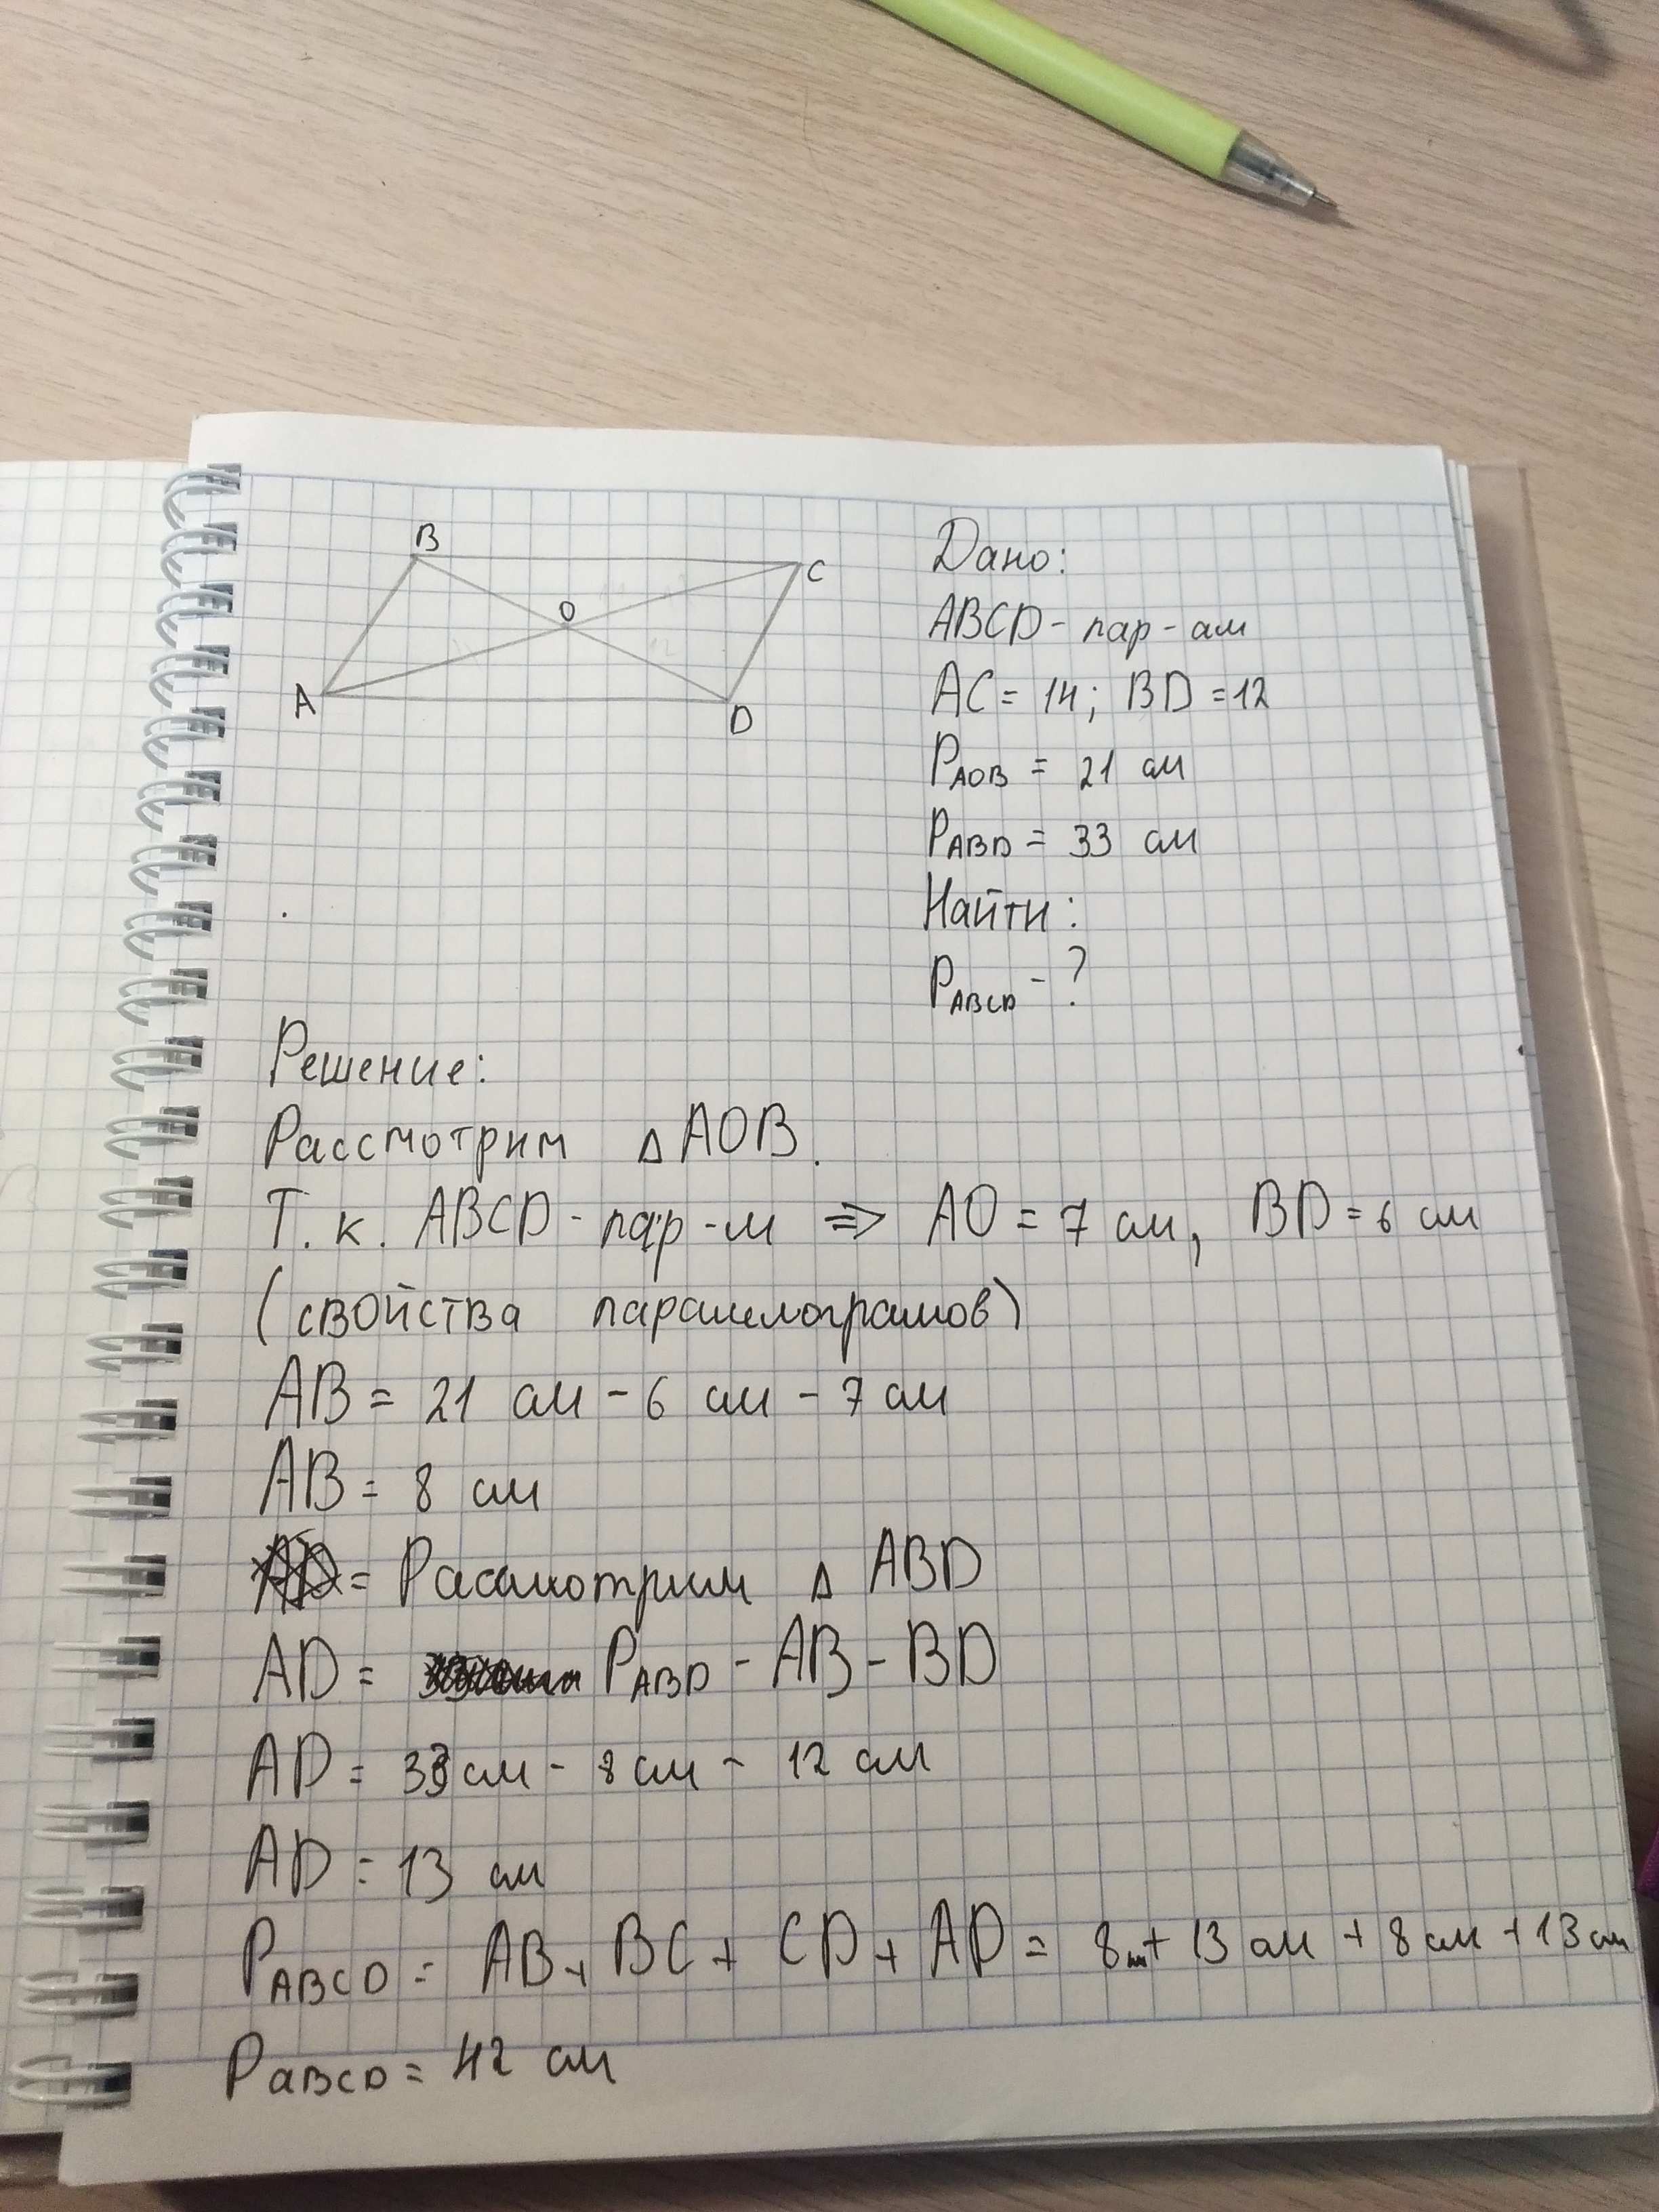 B
C
O
A
D
Дано:
ABCD - пар-ам
AC = 14; BD = 12
PAOB = 21 см
PABD = 33 см
Найти:
PABCD - ?
Решение:
Рассмотрим △ AOB.
Т. к. ABCD - пар-м => AO = 7 см, BD = 6 см
(свойства параллелограмов)
AB = 21 см - 6 см - 7 см
AB = 8 см
= Рассмотрим △ ABD
AD = PABD - AB - BD
AD = 33 см - 8 см - 12 см
AD = 13 см
PABCD = AB + BC + CD + AD = 8 см + 13 см + 8 см + 13 см
PABCD = 42 см